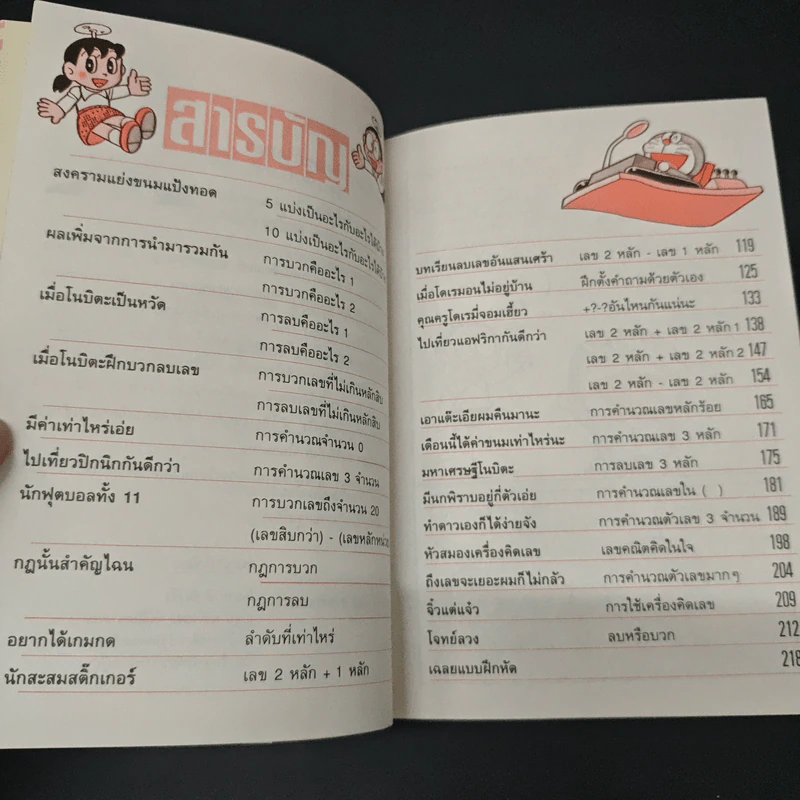 สารบัญ
สงครามแย่งขนมแป้งทอด 5 แบ่งเป็นอะไรกับอะไรได้บ้าง
10 แบ่งเป็นอะไรกับอะไรได้บ้าง
ผลเพิ่มจากการนำมารวมกัน การบวกคืออะไร 1
การบวกคืออะไร 2
เมื่อโนบิตะเป็นหวัด การลบคืออะไร 1
การลบคืออะไร 2
เมื่อโนบิตะฝึกบวกลบเลข การบวกเลขที่ไม่เกินหลักสิบ
การลบเลขที่ไม่เกินหลักสิบ
มีค่าเท่าไหร่เอ่ย การคำนวณจำนวน 0
ไปเที่ยวปิกนิกกันดีกว่า การคำนวณเลข 3 จำนวน
นักฟุตบอลทั้ง 11 การบวกเลขถึงจำนวน 20
(เลขสิบกว่า) - (เลขหลักหน่วย
กฎนั้นสำคัญไฉน กฎการบวก
กฎการลบ
อยากได้เกมกด ลำดับที่เท่าไหร่
นักสะสมสติ๊กเกอร์ เลข 2 หลัก + 1 หลัก
บทเรียนลบเลขอันแสนเศร้า เลข 2 หลัก - เลข 1 หลัก 119
เมื่อโดเรมอนไม่อยู่บ้าน ฝึกตั้งคำถามด้วยตัวเอง 125
คุณครูโดเรมี่จอมเฮี้ยว +?-?อันไหนกันแน่นะ 133
ไปเที่ยวแอฟริกากันดีกว่า เลข 2 หลัก + เลข 2 หลัก 1 138
เลข 2 หลัก + เลข 2 หลัก 2 147
เลข 2 หลัก - เลข 2 หลัก 154
เอาแต๊ะเอียผมคืนมานะ การคำนวณเลขหลักร้อย 165
เดือนนี้ได้ค่าขนมเท่าไหร่นะ การคำนวณเลข 3 หลัก 171
มหาเศรษฐีโนบิตะ การลบเลข 3 หลัก 175
มีนกพิราบอยู่กี่ตัวเอ่ย การคำนวณเลขใน ( ) 181
ทำดาวเองก็ได้ง่ายจัง การคำนวณตัวเลข 3 จำนวน 189
หัวสมองเครื่องคิดเลข เลขคณิตคิดในใจ 198
ถึงเลขจะเยอะผมก็ไม่กลัว การคำนวณตัวเลขมากๆ 204
จิ๋วแต่แจ๋ว การใช้เครื่องคิดเลข 209
โจทย์ลวง ลบหรือบวก 212
เฉลยแบบฝึกหัด 218